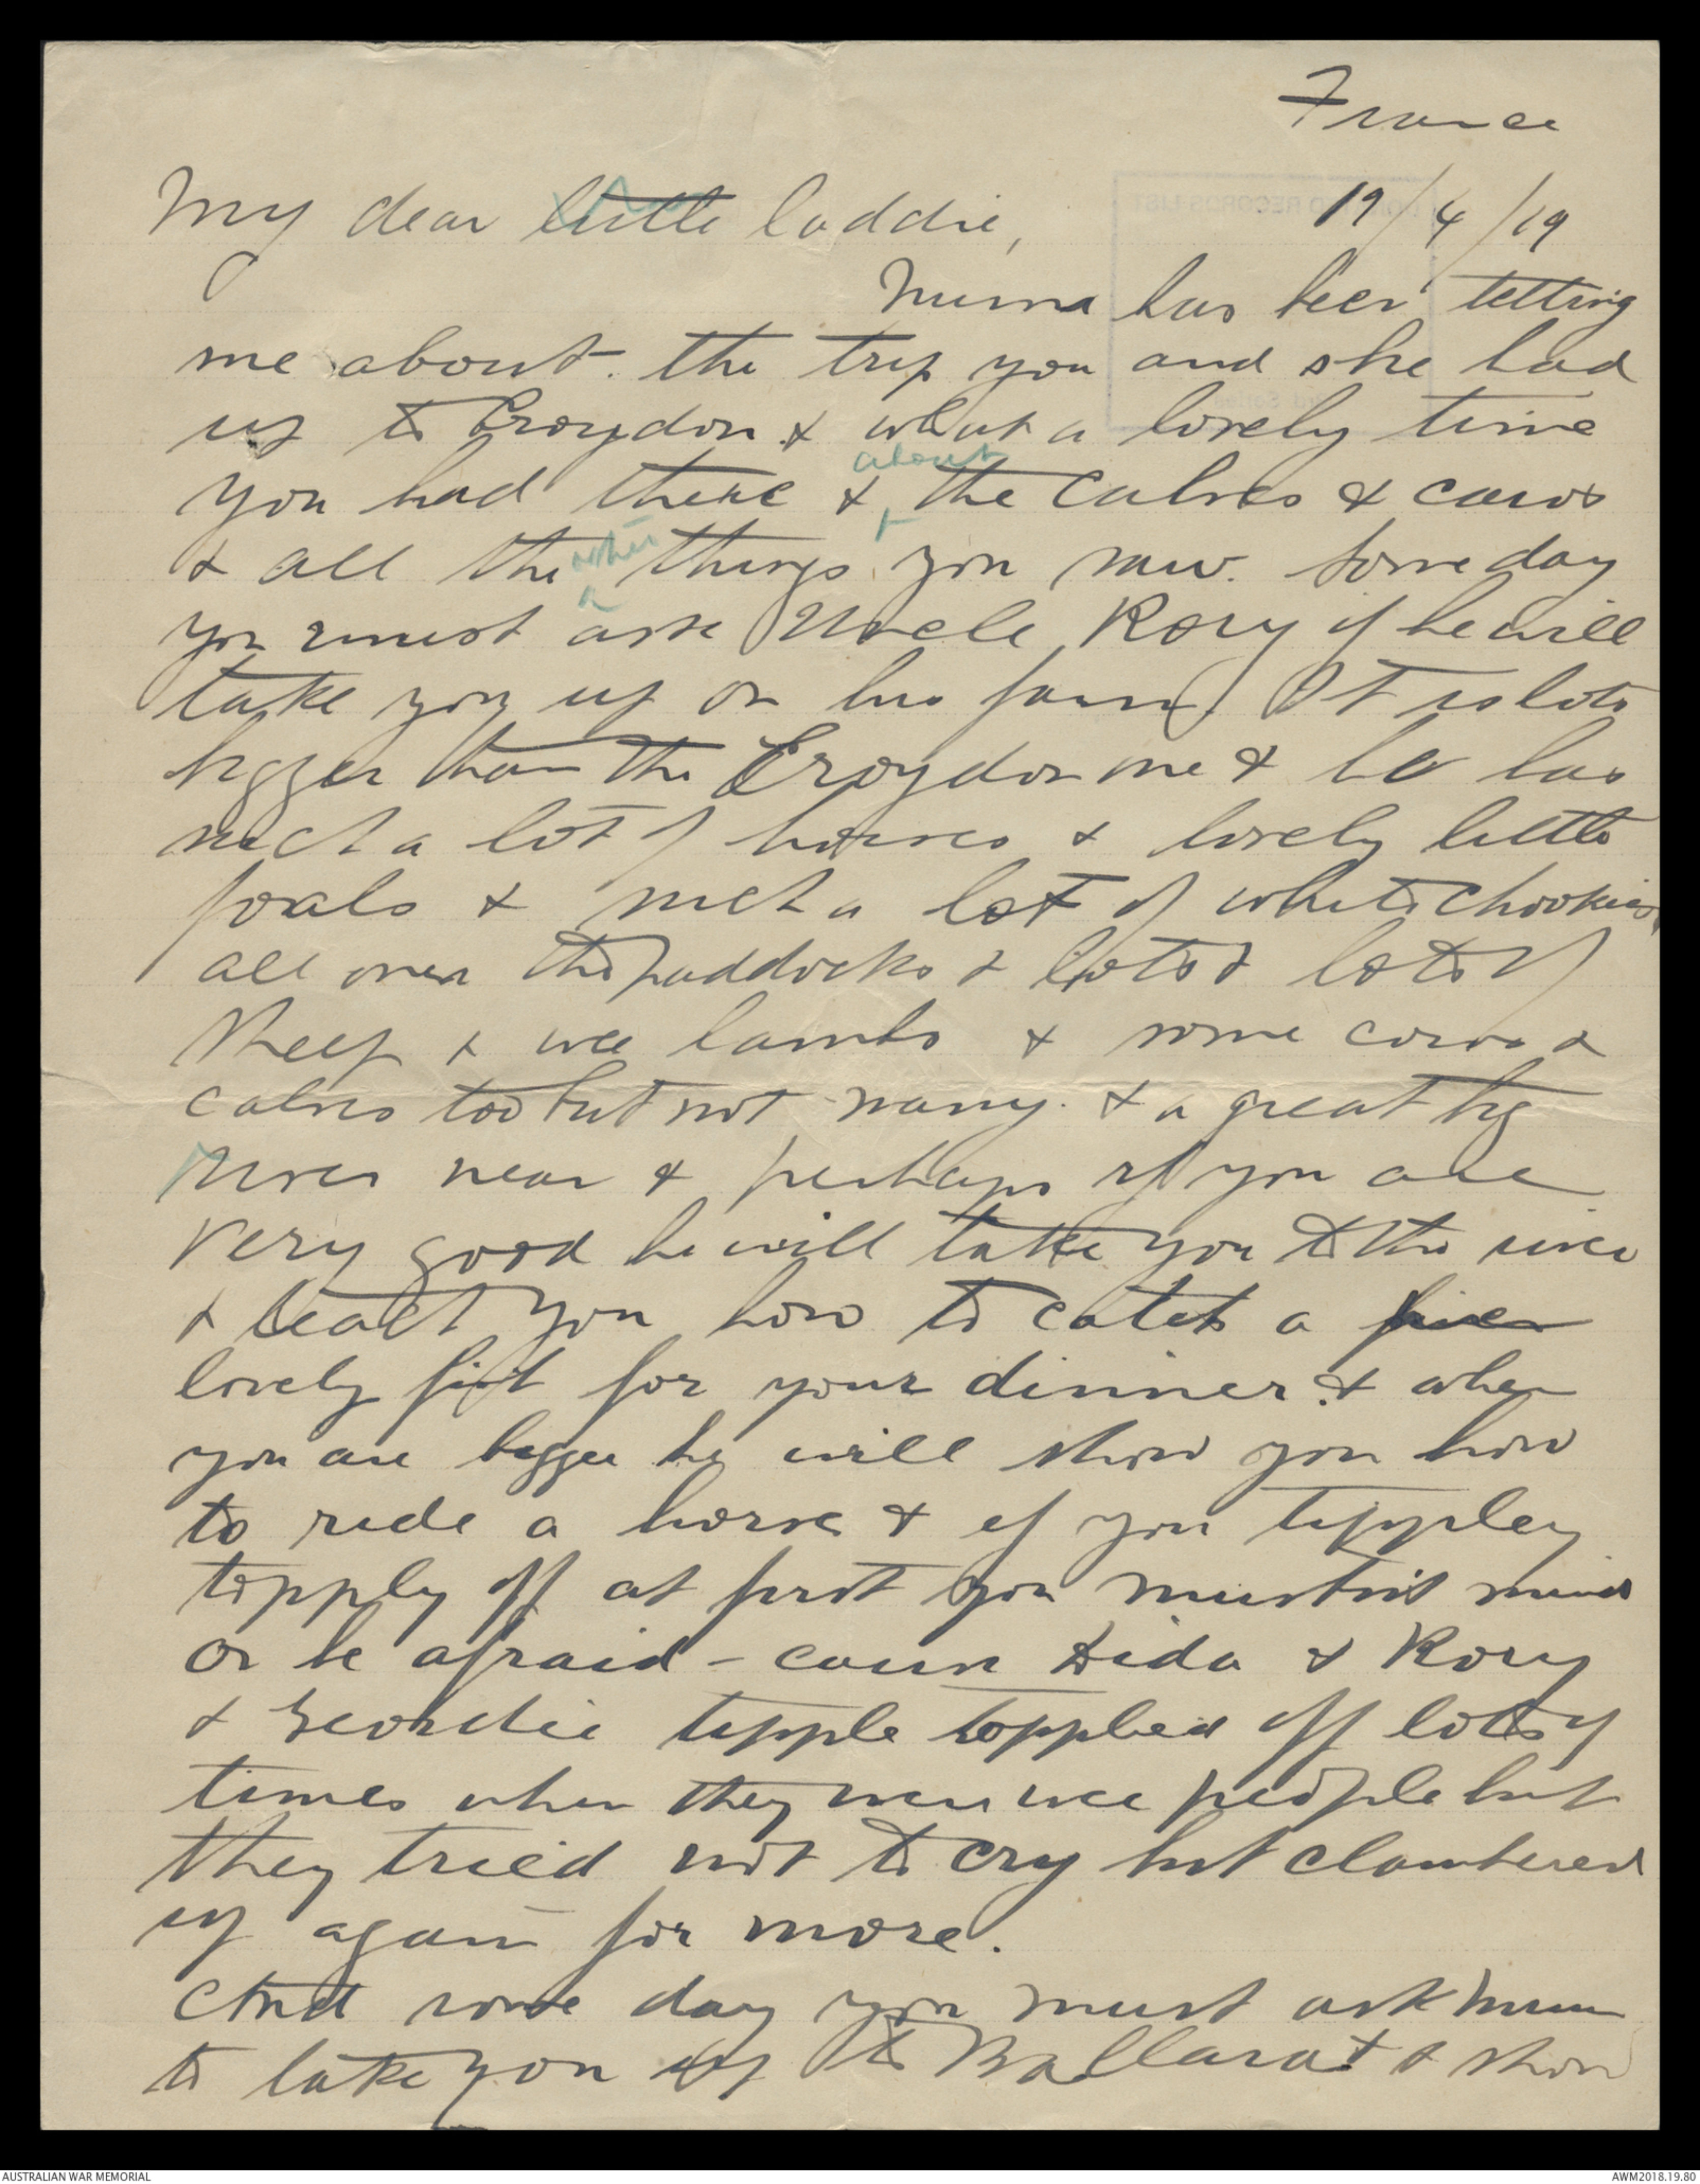 France
19/4/19
My dear little laddie,
Mum has been telling
me about the trip you and she had
up to Croydon & what a lovely time
about
you had there & the calves & cows
other
& all the things you saw. Some day
you must ask Uncle Rory if he will
take you up on his farm. It is lots
bigger than the Croydon one & he has
such a lot of horses & lovely little
foals & such a lot of white chookies
all over the paddocks & lots & lots of
sheep & wee lambs & some cows &
calves too but not many. & a great big
River near & perhaps if you are
very good he will take you to the river
& teach you how to catch a
lovely fish for your dinner. & when
you are bigger he will show you how
to ride a horse & if you tippley
topply off at first you mustn't mind
or be afraid - cause Dida & Rory
& Geordie tipple toppled off lots of
times when they were wee people but
they tried not to cry but clambered
up again for more.
And some day you must ask Mum
to take you up to Ballarat & show
AUSTRALIAN WAR MEMORIAL
AWM2018.19.80